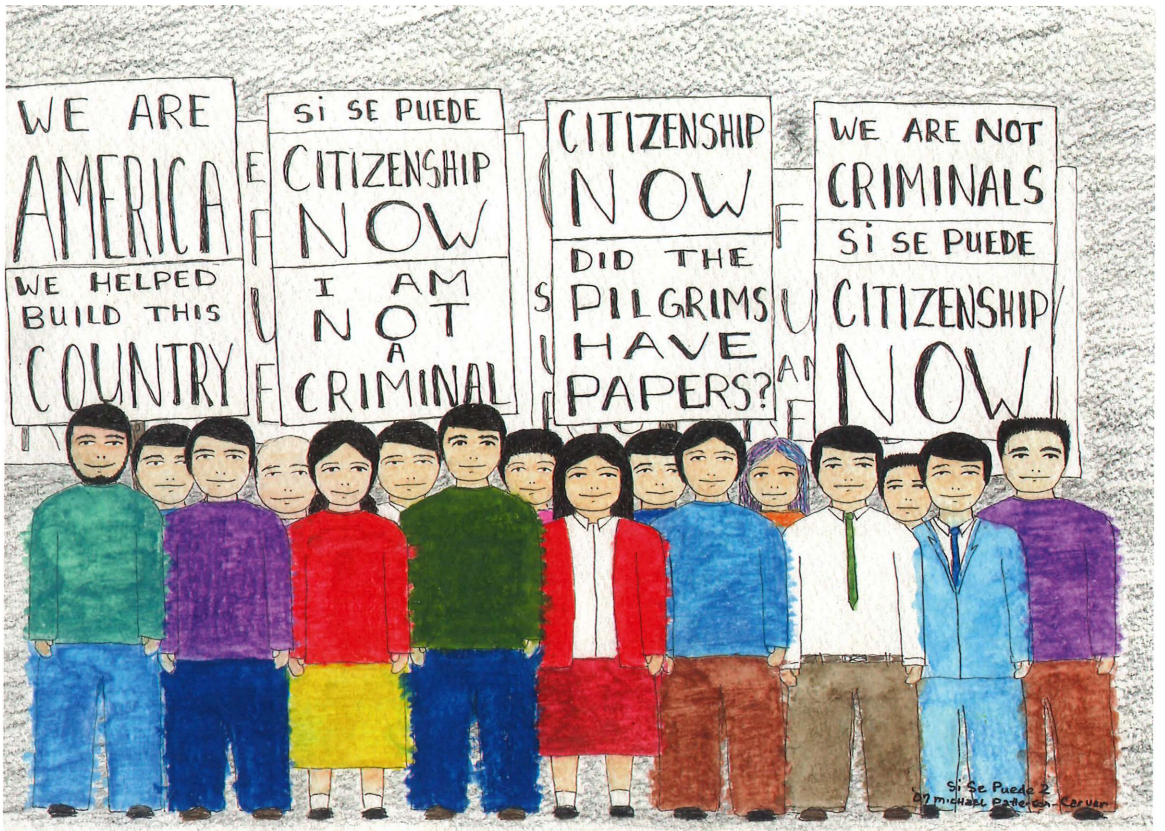 WE ARE
AMERICA
WE HELPED
BUILD THIS
COUNTRY
Si SE PUEDE
CITIZENSHIP
NOW
I AM
NOT
A
CRIMINAL
CITIZENSHIP
NOW
DID THE
PILGRIMS
HAVE
PAPERS?
WE ARE NOT
CRIMINALS
Si SE PUEDE
CITIZENSHIP
NOW
Si Se Puede 2
'07 michael Patterson-Carver